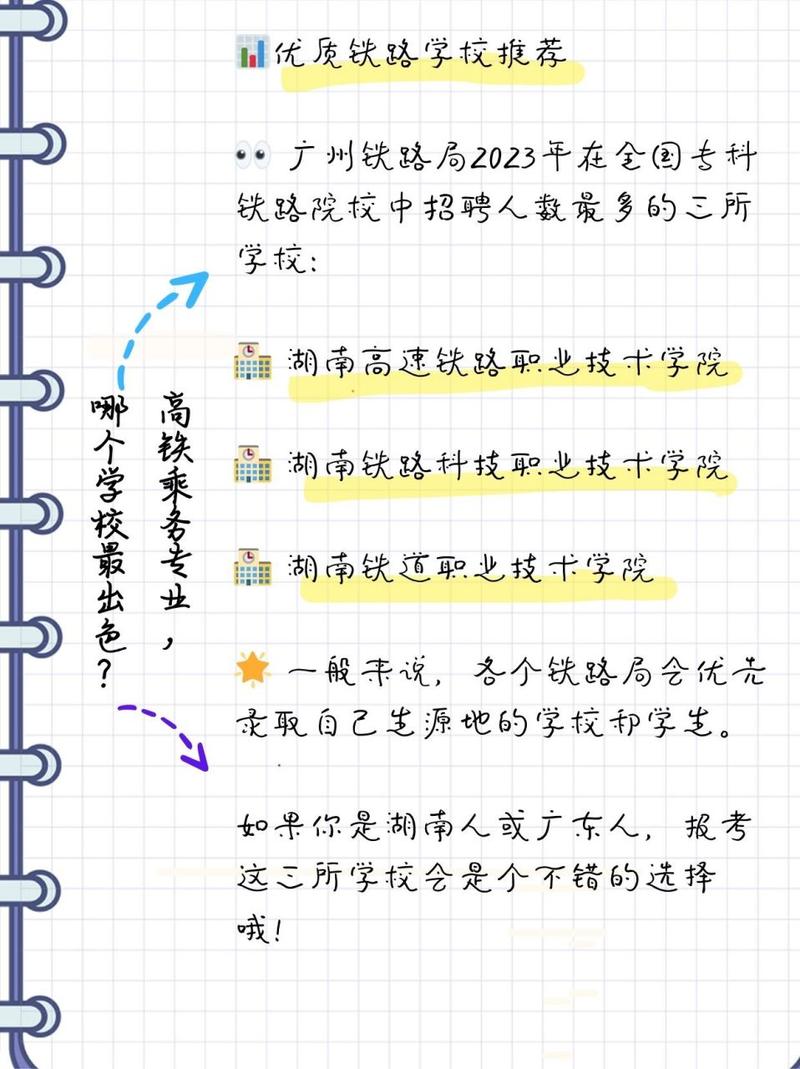 📊优质铁路学校推荐
👀 广州铁路局2023年在全国专科
铁路院校中招聘人数最多的三所
学校:
🏫 湖南高速铁路职业技术学院
🏫 湖南铁路科技职业技术学院
🏫 湖南铁道职业技术学院
🌟 一般来说，各个铁路局会优先
录取自己生源地的学校和学生。
如果你是湖南人或广东人，报考
这三所学校会是个不错的选择
哦!
高铁乘务专业，
哪个学校最出色?